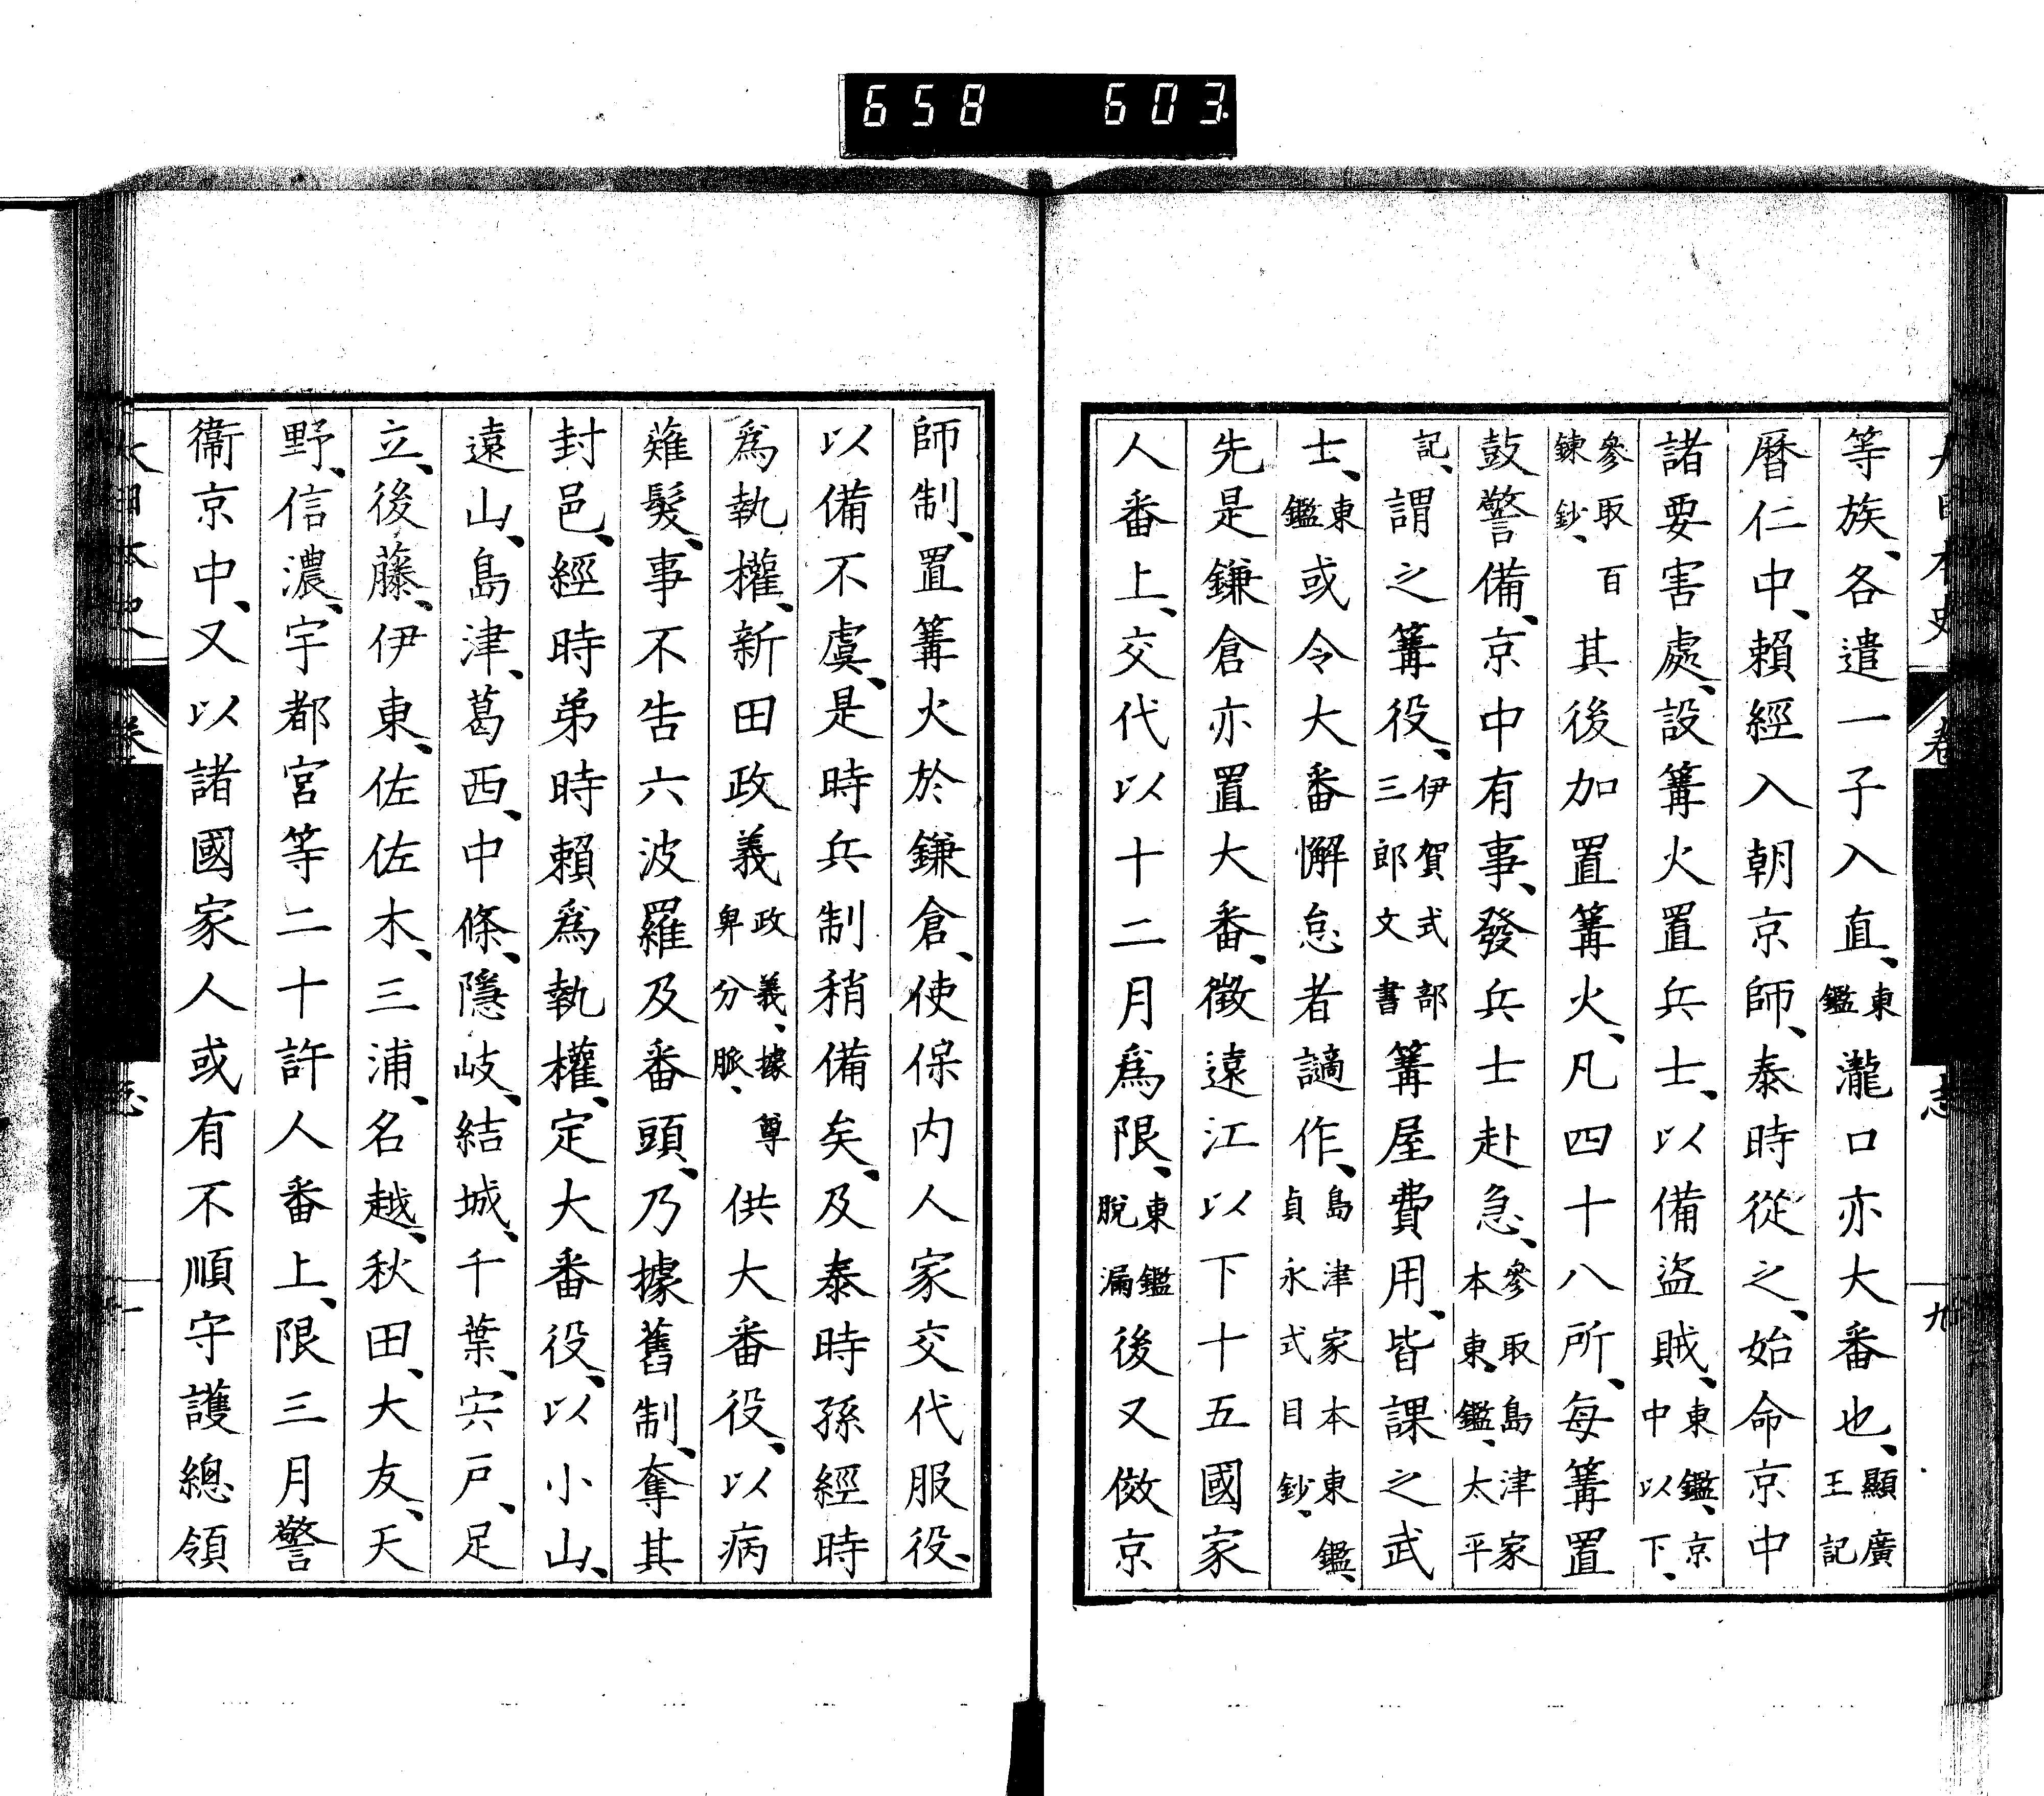 658 603
等族、各遣一子入直、東鑑瀧口亦大番也、顯廣王記
暦仁中、賴經入朝京師、泰時從之、始命京中
諸要害處、設篝火置兵士、以備盜賊、東鑑、京中以下、
參取百鍊鈔、其後加置篝火、凡四十八所、每篝置
鼓警備、京中有事、發兵士赴急、參取島津家本東鑑、太平
記、謂之篝役、伊賀式部三郎文書篝屋費用、皆課之武
士、東鑑或令大番懈怠者謫作、島津家本東鑑、貞永式目鈔、
先是鎌倉亦置大番、徵遠江以下十五國家
人番上、交代以十二月爲限、東鑑脫漏後又倣京
師制、置篝火於鎌倉、使保内人家交代服役、
以備不虞、是時兵制稍備矣、及泰時孫經時
爲執權、新田政義政義、據尊卑分脈、供大番役、以病
薙髮、事不告六波羅及番頭、乃據舊制、奪其
封邑、經時弟時賴爲執權、定大番役、以小山、
遠山、島津、葛西、中條、隱岐、結城、千葉、宍戸、足
立、後藤、伊東、佐佐木、三浦、名越、秋田、大友、天
野、信濃、宇都宮等二十許人番上、限三月警
衞京中、又以諸國家人或有不順守護總領